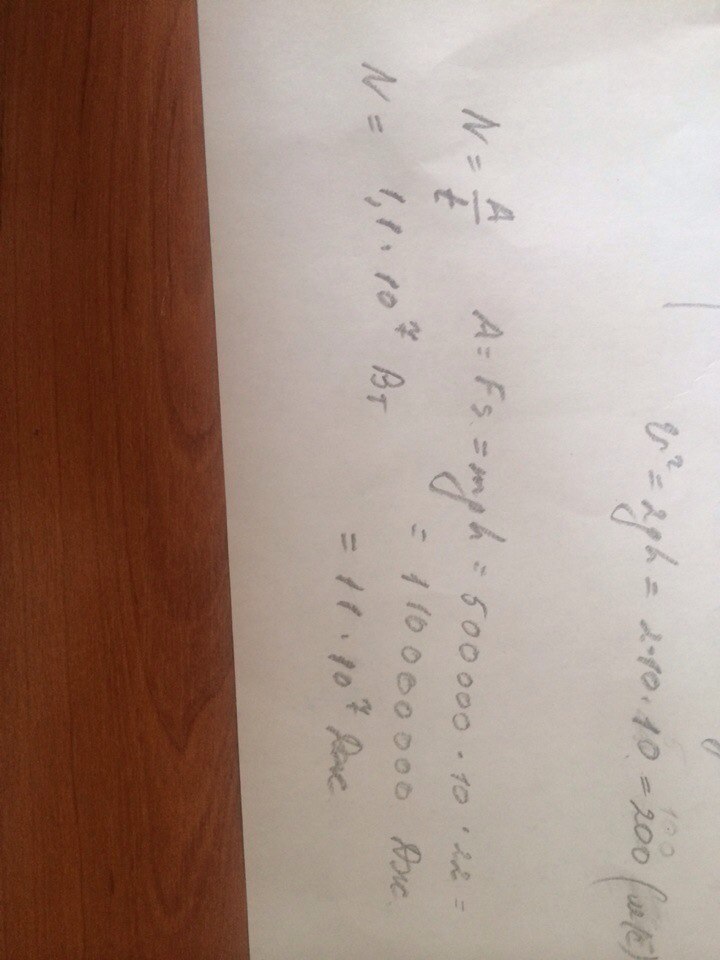 v² = 2gh = 2·10·10 = 200
100
N = A/t A = Fs = mgh = 500000·10·22 =
= 110000000 Дж
N = 1,1·10⁷ Вт = 11·10⁷ Дж